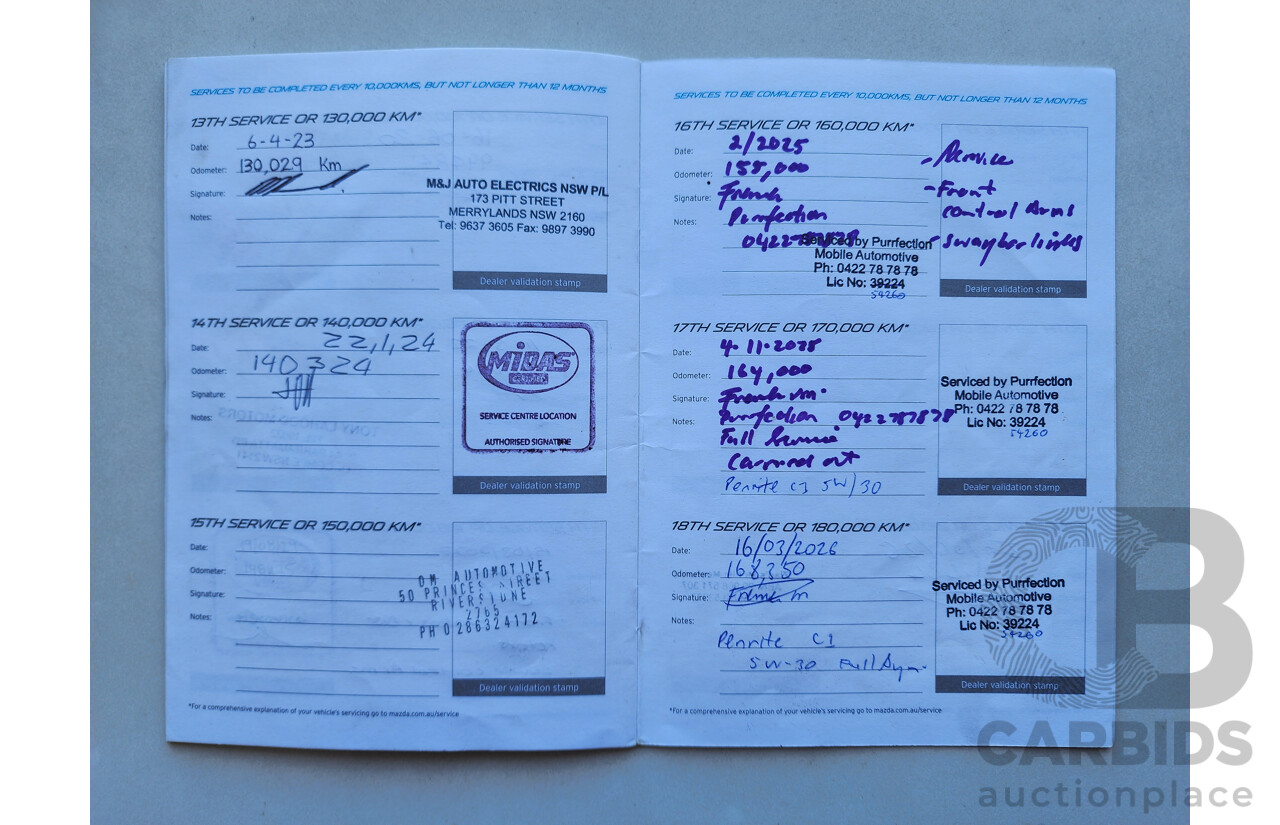 SERVICES TO BE COMPLETED EVERY 10,000KMS, BUT NOT LONGER THAN 12 MONTHS
13TH SERVICE OR 130,000 KM*
Date: 6-4-23
Odometer: 130,029 Km
Signature:
Notes:
M&J AUTO ELECTRICS NSW P/L
173 PITT STREET
MERRYLANDS NSW 2160
Tel: 9637 3605 Fax: 9897 3990
Dealer validation stamp
14TH SERVICE OR 140,000 KM*
Date: 22,1,24
Odometer: 140324
Signature:
Notes:
MIDAS
SERVICE CENTRE LOCATION
AUTHORISED SIGNATURE
Dealer validation stamp
15TH SERVICE OR 150,000 KM*
Date:
Odometer:
Signature:
Notes:
DM AUTOMOTIVE
50 PRINCES STREET
RIVERSTONE
2765
PH 0286324172
Dealer validation stamp
*For a comprehensive explanation of your vehicle's servicing go to mazda.com.au/service
SERVICES TO BE COMPLETED EVERY 10,000KMS, BUT NOT LONGER THAN 12 MONTHS
16TH SERVICE OR 160,000 KM*
Date: 2/2025
Odometer: 155,000
Signature:
Notes: Purrfection
0422
Serviced by Purrfection
Mobile Automotive
Ph: 0422 78 78 78
Lic No: 39224
54260
- Service
- Front
control Arms
- Swaybar links
Dealer validation stamp
17TH SERVICE OR 170,000 KM*
Date: 4.11.2025
Odometer: 164,000
Signature:
Notes: Purrfection 0422787878
Full Service
Carried out
Penrite C3 5W/30
Serviced by Purrfection
Mobile Automotive
Ph: 0422 78 78 78
Lic No: 39224
54260
Dealer validation stamp
18TH SERVICE OR 180,000 KM*
Date: 16/03/2026
Odometer: 168,350
Signature:
Notes:
Penrite C3
5W-30 Full Syn
Serviced by Purrfection
Mobile Automotive
Ph: 0422 78 78 78
Lic No: 39224
54260
Dealer validation stamp
*For a comprehensive explanation of your vehicle's servicing go to mazda.com.au/service
CARBIDS
auctionplace